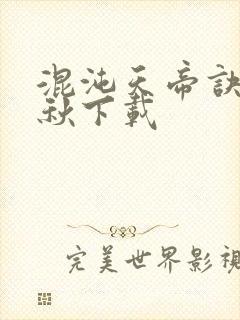 混沌天帝訣
秋下載
完美世界影視